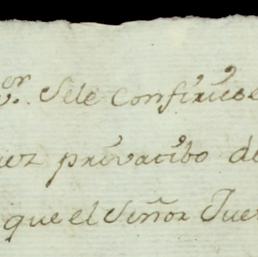 or. Se le confirio e
uez privatibo de
que el Señor Jue